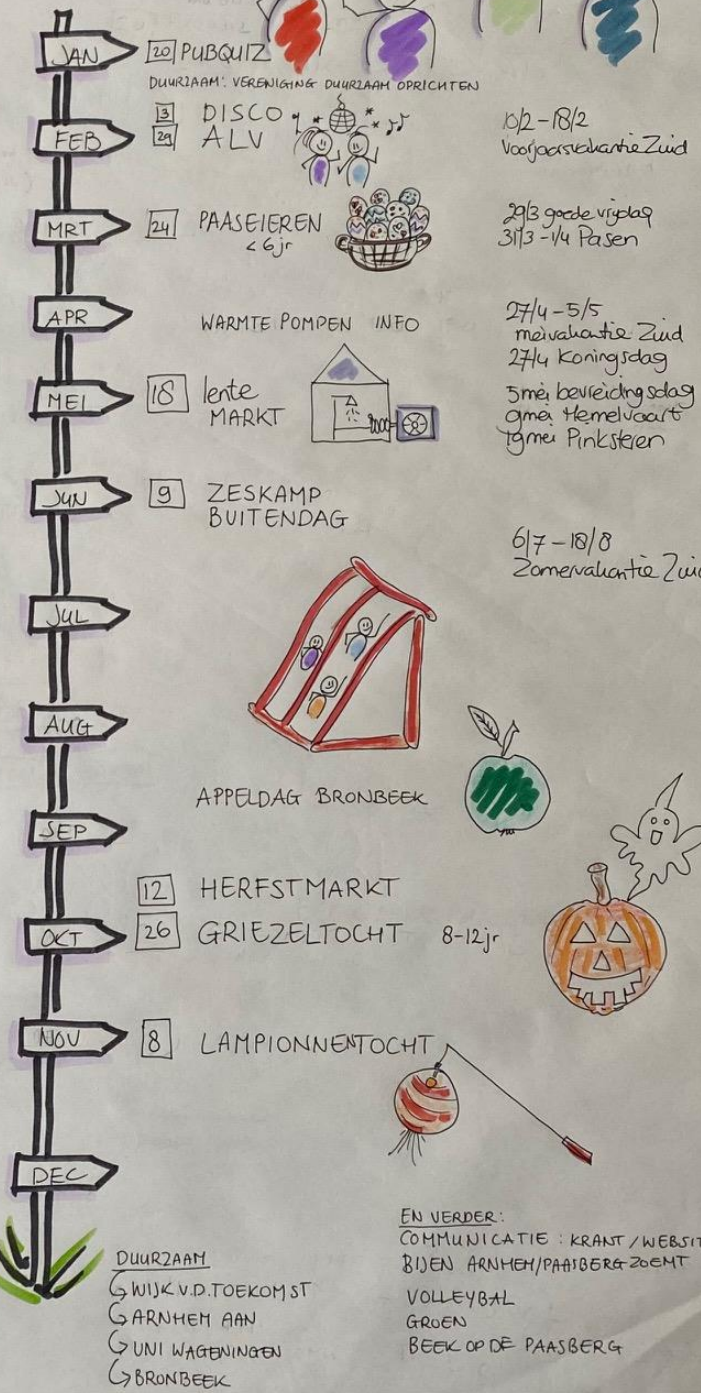 JAN 20 PUBQUIZ
DUURZAAM: VERENIGING DUURZAAM OPRICHTEN
3 DISCO
FEB 29 ALV
10/2-18/2
Voorjaarsvakantie Zuid
MRT 24 PAASEIEREN
< 6jr
29/3 goede vrijdag
31/3-1/4 Pasen
APR
WARMTE POMPEN INFO
27/4-5/5
meivakantie Zuid
27/4 Koningsdag
MEI 18 lente
MARKT
5mei bevreidingsdag
9mei Hemelvaart
19mei Pinksteren
JUN 9 ZESKAMP
BUITENDAG
6/7-18/8
Zomervakantie Zuid
JUL
AUG
APPELDAG BRONBEEK
SEP
12 HERFSTMARKT
OKT 26 GRIEZELTOCHT 8-12jr
NOV 8 LAMPIONNENTOCHT
DEC
DUURZAAM
WIJK V.D. TOEKOMST
ARNHEM AAN
UNI WAGENINGEN
BRONBEEK
EN VERDER:
COMMUNICATIE: KRANT/WEBSIT
BIJEN ARNHEM/PAASBERG ZOEMT
VOLLEYBAL
GROEN
BEEK OP DE PAASBERG